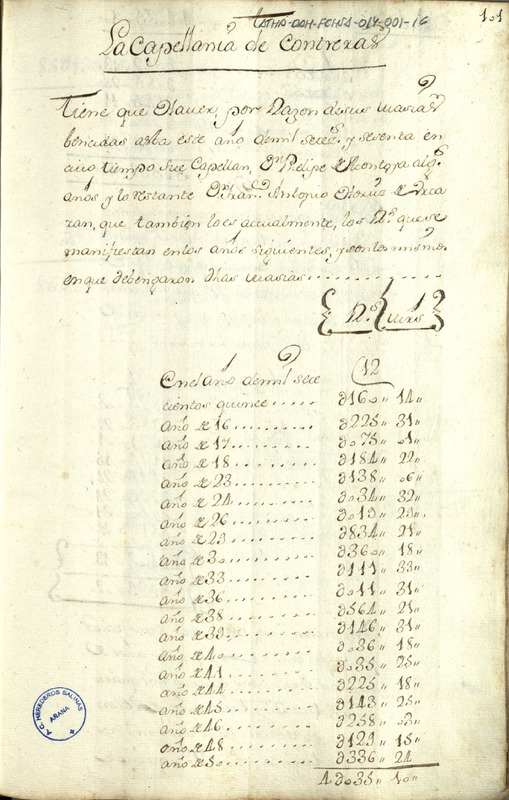 ATHA-DAH-FCHSA-014-001-16
101
La Capellanía de Contreras
Tiene que Haver, por Razon desus masias
bencidas asta este año demil setez.s y sesenta en
cuio tiempo fue Capellan, Dn Phelipe de Montoya alg.s
años y lo restante Dn Fran.co Antonio Ortiz de
zan, que tambien lo es actualmente, los Rs. quese
manifiestan enlos años siguientes, y sonlos mismos
enque debengaron dhas masias
Rs. mrs
Enel año demil sete (12
cientos quince ..... d160 " 14 "
año de 16 ......... d225 " 31 "
año de 17 ......... d075 " 01 "
año de 18 ......... d184 " 22 "
año de 23 ......... d138 " 06 "
año de 24 ......... d034 " 32 "
año de 26 ......... d019 " 29 "
año de 29 ......... d834 " 21 "
año de 30 ......... d360 " 18 "
año de 33 ......... d111 " 33 "
año de 36 ......... d011 " 31 "
año de 38 ......... d564 " 21 "
año de 39 ......... d146 " 31 "
año de 40 ......... d036 " 18 "
año de 41 ......... d035 " 25 "
año de 44 ......... d225 " 18 "
año de 45 ......... d143 " 25 "
año de 46 ......... d258 " 03 "
año de 48 ......... d129 " 15 "
año de 50 ......... d336 " 24
4d035 " 10 "
A.C. HEREDEROS SALINAS
ARANA